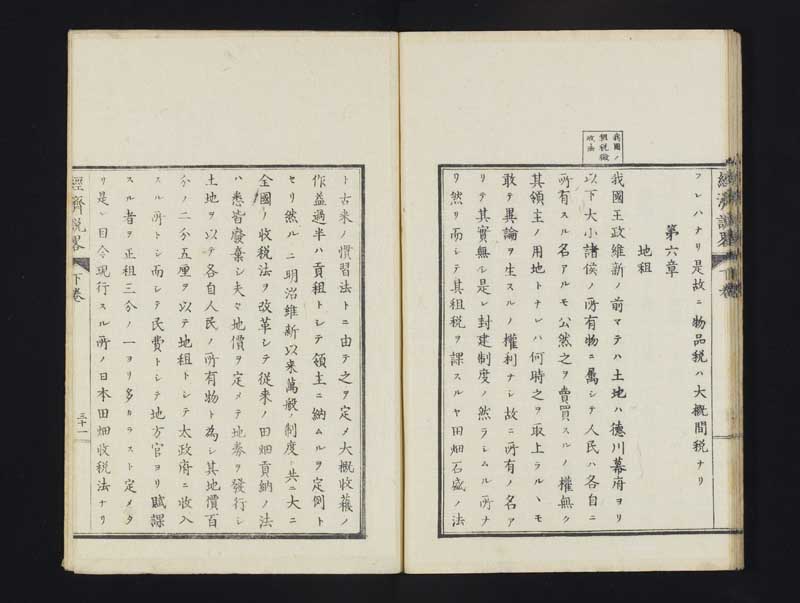 フレハナリ是故ニ物品税ハ大概間税ナリ
第六章
地租
我國ノ
租税徴
收法
我國王政維新ノ前マテハ土地ハ徳川幕府ヨリ
以下大小諸侯ノ所有物ニ属シテ人民ハ各自ニ
所有スル名アルモ公然之ヲ賣買スルノ權無ク
其領主ノ用地トナレハ何時之ヲ取上ラルヽモ
敢テ異論ヲ生スルノ權利ナシ故ニ所有ノ名ア
リテ其實無シ是レ封建制度ノ然ラシムル所ナ
リ然リ而シテ其租税ヲ課スルヤ田畑石盛ノ法
ト古来ノ慣習法トニ由テ之ヲ定メ大概收穫ノ
作益過半ハ貢租トシテ領主ニ納ムルヲ定例ト
セリ然ルニ明治維新以来萬般ノ制度ト共ニ大ニ
全國ノ收税法ヲ改革シテ従来ノ田畑貢納ノ法
ハ悉皆廢棄シ夫々地價ヲ定メテ地券ヲ發行シ
土地ヲ以テ各自人民ノ所有物ト為シ其地價百
分ノ二分五厘ヲ以テ地租トシテ太政府ニ收入
スル所トシ而シテ民費トシテ地方官ヨリ賦課
スル者ヲ正租三分ノ一ヨリ多カラスト定メタ
リ是レ目今現行スル所ノ日本田畑收税法ナリ
經濟説略
下卷
三十一